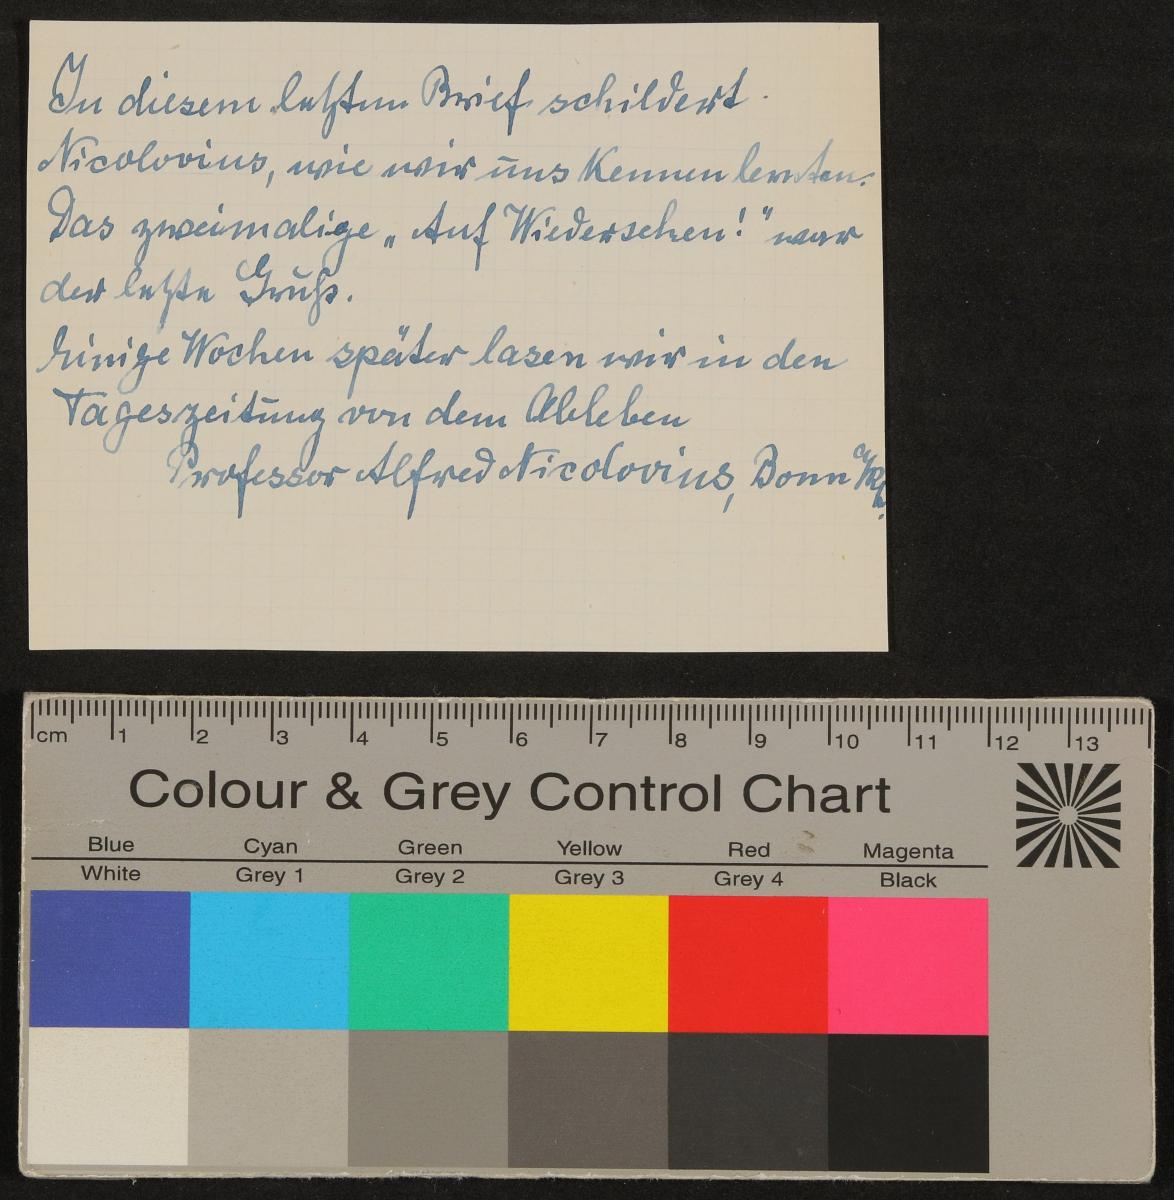 In diesem letzten Brief schildert
Nicolovius, wie wir uns kennen lernten.
Das zweimalige „Auf Wiedersehen!" war
der letzte Gruß.
Einige Wochen später lasen wir in den
Tageszeitung von dem Ableben
Professor Alfred Nicolovius, Bonn a/Rh.
cm 1 2 3 4 5 6 7 8 9 10 11 12 13
Colour & Grey Control Chart
Blue Cyan Green Yellow Red Magenta
White Grey 1 Grey 2 Grey 3 Grey 4 Black